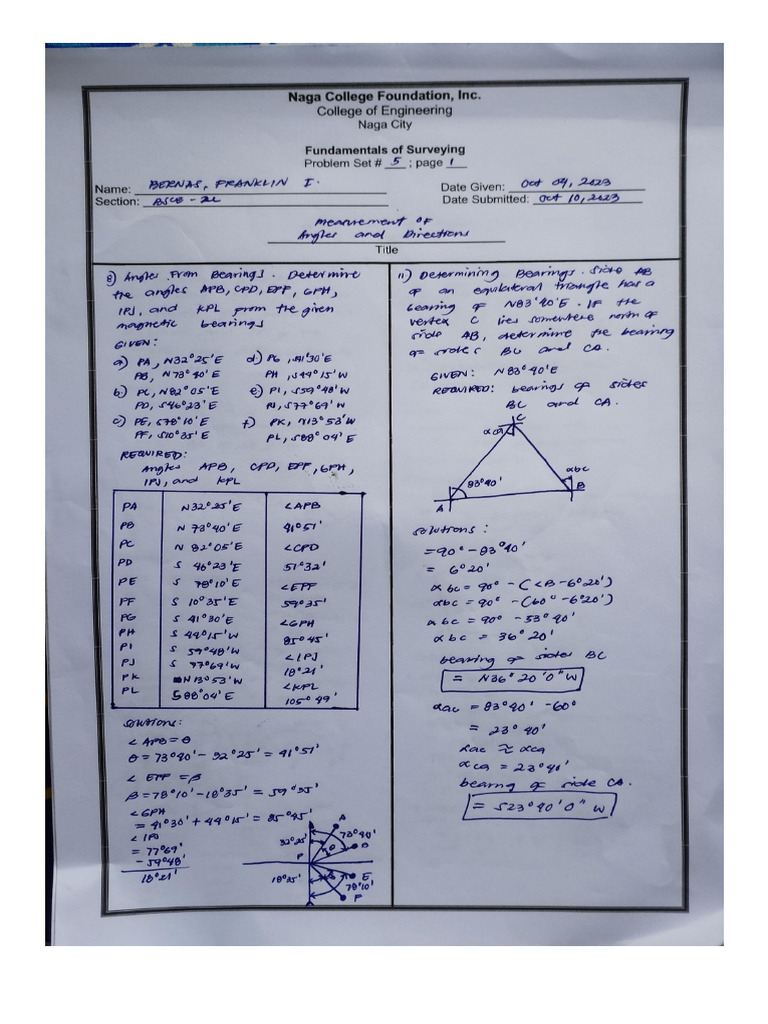 Naga College Foundation, Inc.
College of Engineering
Naga City
Fundamentals of Surveying
Problem Set # 5 ; page 1
Name: BERNAS, FRANKLIN I.
Date Given: Oct 04, 2023
Section: BSCE - 2C
Date Submitted: Oct 10, 2023
Measurement of
Angles and Directions
Title
8) Angles From Bearings. Determine
the angles APB, CPD, EPF, GPH,
IPJ, and KPL from the given
magnetic bearings
GIVEN:
a) PA, N32°25'E d) PG, 41°30'E
PB, N73°40'E PH, S44°15'W
b) PC, N82°05'E e) PI, S59°48'W
PD, S46°23'E PJ, S77°69'W
c) PE, S78°10'E f) PK, N13°53'W
PF, S10°35'E PL, S88°04'E
REQUIRED:
Angles APB, CPD, EPF, GPH,
IPJ, and KPL
PA N32°25'E <APB
PB N 73°40'E 41°51'
PC N 82°05'E <CPD
PD S 46°23'E 51°32'
PE S 78°10'E <EPF
PF S 10°35'E 59°35'
PG S 41°30'E <GPH
PH S 44°15'W 85°45'
PI S 59°48'W <IPJ
PJ S 77°69'W 18°21'
PK N13°53'W <KPL
PL S88°04'E 105°49'
SOLUTIONS:
< APB = θ
θ = 73°40' - 32°25' = 41°51'
< EPF = β
β = 78°10' - 18°35' = 59°35'
<GPH
= 41°30' + 44°15' = 85°45'
< IPJ
= 77°69'
- 59°48'
18°21'
A
32°25'
73°40'
θ
B
P
18°25'
β
E
78°10'
F
11) Determining Bearings. Side AB
of an equilateral triangle has a
bearing of N83°40'E. IF the
vertex C lies somewhere north of
side AB, determine the bearing
of sides BC and CA.
GIVEN: N83°40'E
REQUIRED: bearings of sides
BC and CA.
C
αca
αbc
83°40'
A
B
solutions:
= 90° - 83°40'
= 6°20'
αbc = 90° - (<B - 6°20')
αbc = 90° - (60° - 6°20')
αbc = 90° - 53°40'
αbc = 36°20'
bearing of sides BC
= N36°20'0"W
αac = 83°40' - 60°
= 23°40'
αac ≅ αca
αca = 23°40'
bearing of side CA.
= S23°40'0"W